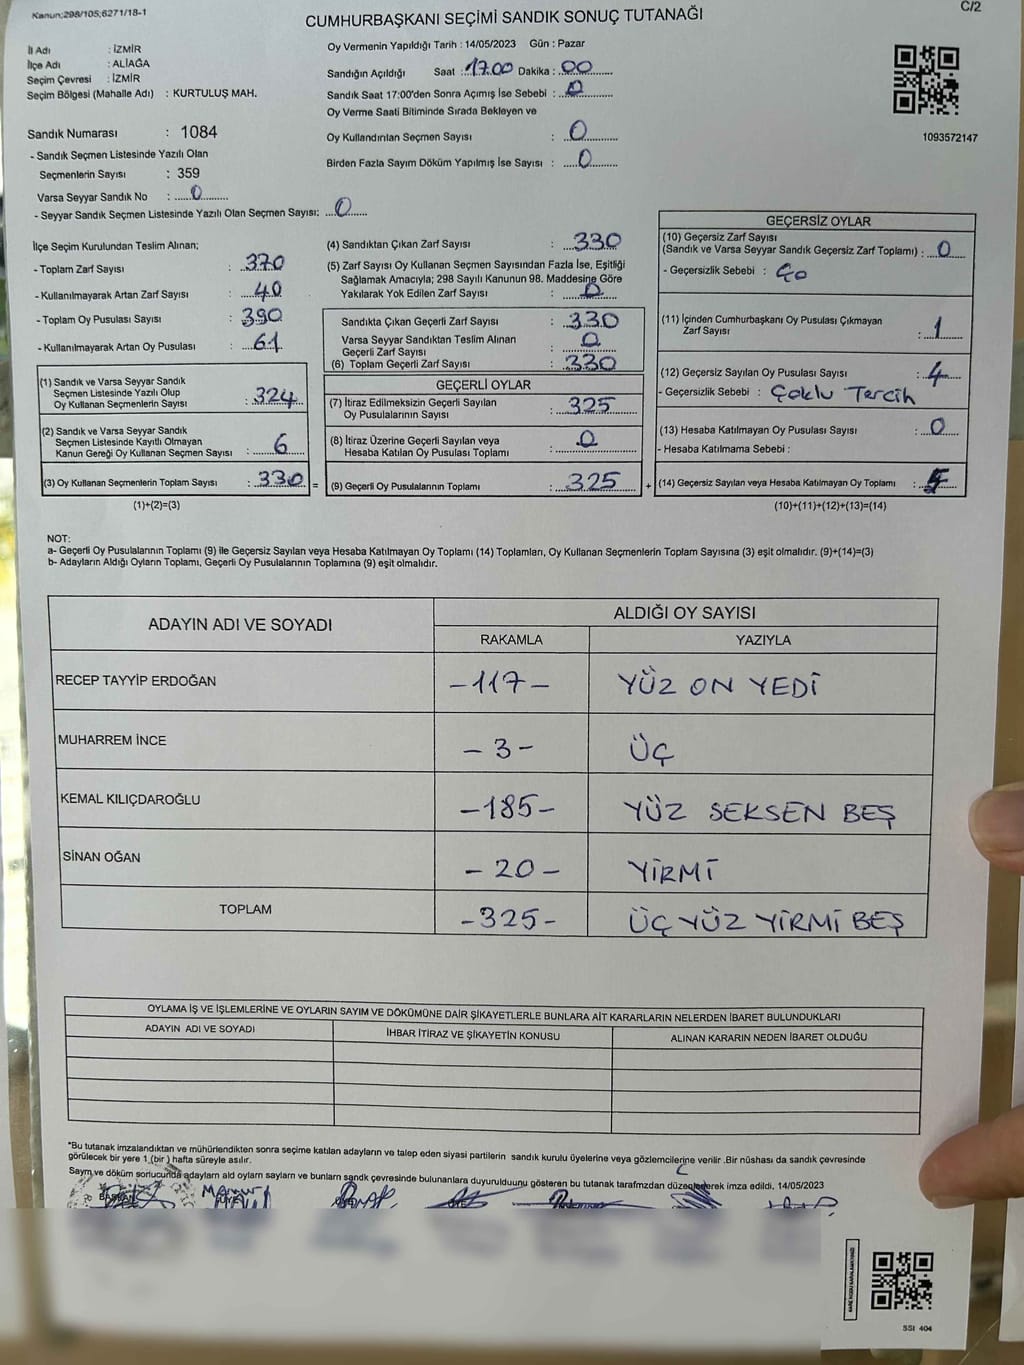 Kanun;298/105;6271/18-1
C/2
CUMHURBAŞKANI SEÇİMİ SANDIK SONUÇ TUTANAĞI
İl Adı : İZMİR
İlçe Adı : ALİAĞA
Seçim Çevresi : İZMİR
Seçim Bölgesi (Mahalle Adı) : KURTULUŞ MAH.
Oy Vermenin Yapıldığı Tarih : 14/05/2023 Gün : Pazar
Sandığın Açıldığı Saat : 17.00 Dakika : 00
Sandık Saat 17:00'den Sonra Açımış İse Sebebi : 0
Oy Verme Saati Bitiminde Sırada Bekleyen ve
Oy Kullandırılan Seçmen Sayısı : 0
Birden Fazla Sayım Döküm Yapılmış İse Sayısı : 0
1093572147
Sandık Numarası : 1084
- Sandık Seçmen Listesinde Yazılı Olan
Seçmenlerin Sayısı : 359
Varsa Seyyar Sandık No : 0
- Seyyar Sandık Seçmen Listesinde Yazılı Olan Seçmen Sayısı: 0
İlçe Seçim Kurulundan Teslim Alınan;
- Toplam Zarf Sayısı : 370
- Kullanılmayarak Artan Zarf Sayısı : 40
- Toplam Oy Pusulası Sayısı : 390
- Kullanılmayarak Artan Oy Pusulası : 61
(1) Sandık ve Varsa Seyyar Sandık
Seçmen Listesinde Yazılı Olup
Oy Kullanan Seçmenlerin Sayısı : 324
(2) Sandık ve Varsa Seyyar Sandık
Seçmen Listesinde Kayıtlı Olmayan
Kanun Gereği Oy Kullanan Seçmen Sayısı : 6
(3) Oy Kullanan Seçmenlerin Toplam Sayısı : 330 =
(1)+(2)=(3)
(4) Sandıktan Çıkan Zarf Sayısı : 330
(5) Zarf Sayısı Oy Kullanan Seçmen Sayısından Fazla İse, Eşitliği
Sağlamak Amacıyla; 298 Sayılı Kanunun 98. Maddesine Göre
Yakılarak Yok Edilen Zarf Sayısı : 0
Sandıkta Çıkan Geçerli Zarf Sayısı : 330
Varsa Seyyar Sandıktan Teslim Alınan
Geçerli Zarf Sayısı : 0
(6) Toplam Geçerli Zarf Sayısı : 330
GEÇERLİ OYLAR
(7) İtiraz Edilmeksizin Geçerli Sayılan
Oy Pusulalarının Sayısı : 325
(8) İtiraz Üzerine Geçerli Sayılan veya
Hesaba Katılan Oy Pusulası Toplamı : 0
(9) Geçerli Oy Pusulalarının Toplamı : 325 +
GEÇERSİZ OYLAR
(10) Geçersiz Zarf Sayısı
(Sandık ve Varsa Seyyar Sandık Geçersiz Zarf Toplamı) : 0
- Geçersizlik Sebebi :
(11) İçinden Cumhurbaşkanı Oy Pusulası Çıkmayan
Zarf Sayısı : 1
(12) Geçersiz Sayılan Oy Pusulası Sayısı : 4
- Geçersizlik Sebebi : Çoklu Tercih
(13) Hesaba Katılmayan Oy Pusulası Sayısı : 0
- Hesaba Katılmama Sebebi :
(14) Geçersiz Sayılan veya Hesaba Katılmayan Oy Toplamı : 5
(10)+(11)+(12)+(13)=(14)
NOT:
a- Geçerli Oy Pusulalarının Toplamı (9) ile Geçersiz Sayılan veya Hesaba Katılmayan Oy Toplamı (14) Toplamları, Oy Kullanan Seçmenlerin Toplam Sayısına (3) eşit olmalıdır. (9)+(14)=(3)
b- Adayların Aldığı Oyların Toplamı, Geçerli Oy Pusulalarının Toplamına (9) eşit olmalıdır.
ADAYIN ADI VE SOYADI
ALDIĞI OY SAYISI
RAKAMLA YAZIYLA
RECEP TAYYİP ERDOĞAN -117- YÜZ ON YEDİ
MUHARREM İNCE -3- ÜÇ
KEMAL KILIÇDAROĞLU -185- YÜZ SEKSEN BEŞ
SİNAN OĞAN -20- YİRMİ
TOPLAM -325- ÜÇ YÜZ YİRMİ BEŞ
OYLAMA İŞ VE İŞLEMLERİNE VE OYLARIN SAYIM VE DÖKÜMÜNE DAİR ŞİKAYETLERLE BUNLARA AİT KARARLARIN NELERDEN İBARET BULUNDUKLARI
ADAYIN ADI VE SOYADI İHBAR İTİRAZ VE ŞİKAYETİN KONUSU ALINAN KARARIN NEDEN İBARET OLDUĞU
*Bu tutanak imzalandıktan ve mühürlendikten sonra seçime katılan adayların ve talep eden siyasi partilerin sandık kurulu üyelerine veya gözlemcilerine verilir .Bir nüshası da sandık çevresinde
görülecek bir yere 1 (bir ) hafta süreyle asılır.
Sayım ve döküm sonucunda adayların ald oyların sayların ve bunların sandk çevresinde bulunanlara duyurulduunu gösteren bu tutanak tarafmzdan düzenlenerek imza edildi. 14/05/2023
BAŞKAN
SSI 404